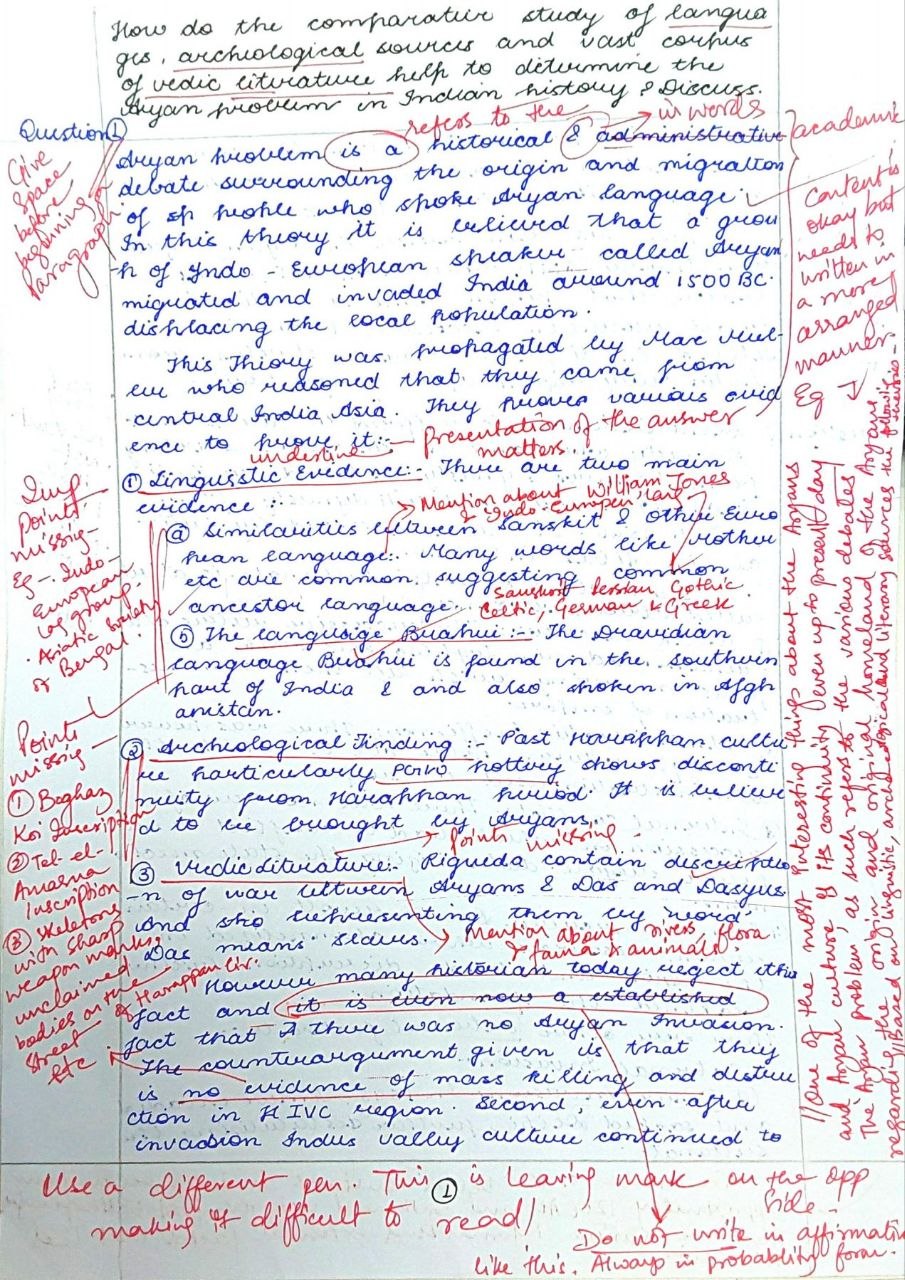 How do the comparative study of langua
ges, archeological sources and vast corpus
of vedic literature help to determine the
Aryan problem in Indian history? Discuss.
refers to the
in words
Question 1
Aryan problem is a historical & administrative
academic
debate surrounding the origin and migration
of sp people who spoke Aryan language.
In this theory it is believed that a grou
-p of Indo - European speaker called Aryan
migrated and invaded India around 1500 BC.
displacing the local population.
Give
space
before
beginning a
Paragraph
Content is
okay but
needs to
written in
a more
arranged
manner.
Eg
This Thiory was propagated by Max Mul-
ler who reasoned that they came from
central India Asia. They proves various evid
ence to prove it:-
Presentation of the answer
matters.
underline
① Linguistic Evidence:- There are two main
evidence :
Mention about William Jones
& Indo-Eumpen lang
ⓐ Similarities between Sanskit & other Euro
pean language:. Many words like Mother
etc are common suggesting common
ancestor language.
Sanskrit Persian, Gothic
Celtic, German & Greek
ⓑ The langusige Brahui :- The Dravidian
language Brahui is found in the southern
part of India & and also spoken in Afgh
anistan.
Imp.
points
missing-
Eg-. Indo-
European
lag group
. Asiatic Society
of Bengal.
② Archeological Finding :- Past Harappan cultu
re particularly PGW pottery shows disconti
nuity from Harappan period. It is believe
d to be brought by Aryans.
Points
missing -
① Boghaz
Koi Inscription
② Tel-el-
Amarna
Inscription
③ Skeletons
with sharp
weapon marks,
unclaimed
bodies on the
street of Harappan Civ.
etc
points missing -
③ Vedic Literature:- Rigveda contain descriptio
-n of war between Aryans & Das and Dasyus
And sho representing them by 'word'
Das means slaves.
Mention about rivers, flora
& fauna & animals.
However many historian today reject this
fact and it is even now a established
fact that A there was no Aryan Invasion.
The counterargument given is that they
is no evidence of mass killing and destru
ction in H IVC region. Second, even after
invadsion Indus valley culture continued to
//One of the most interesting things about the Aryans
and Aryan culture, is its continuity even up to present day.
The 'Aryan problem', as such refers to the various debates
regarding the origin and original homeland of the Aryans.
//Based on linguistic, archaeological and literary sources the following theories-
Use a different pen. This is leaving mark on the opp
side.
making it difficult to read/
①
Do not write in affirmative
like this. Always in probability form.